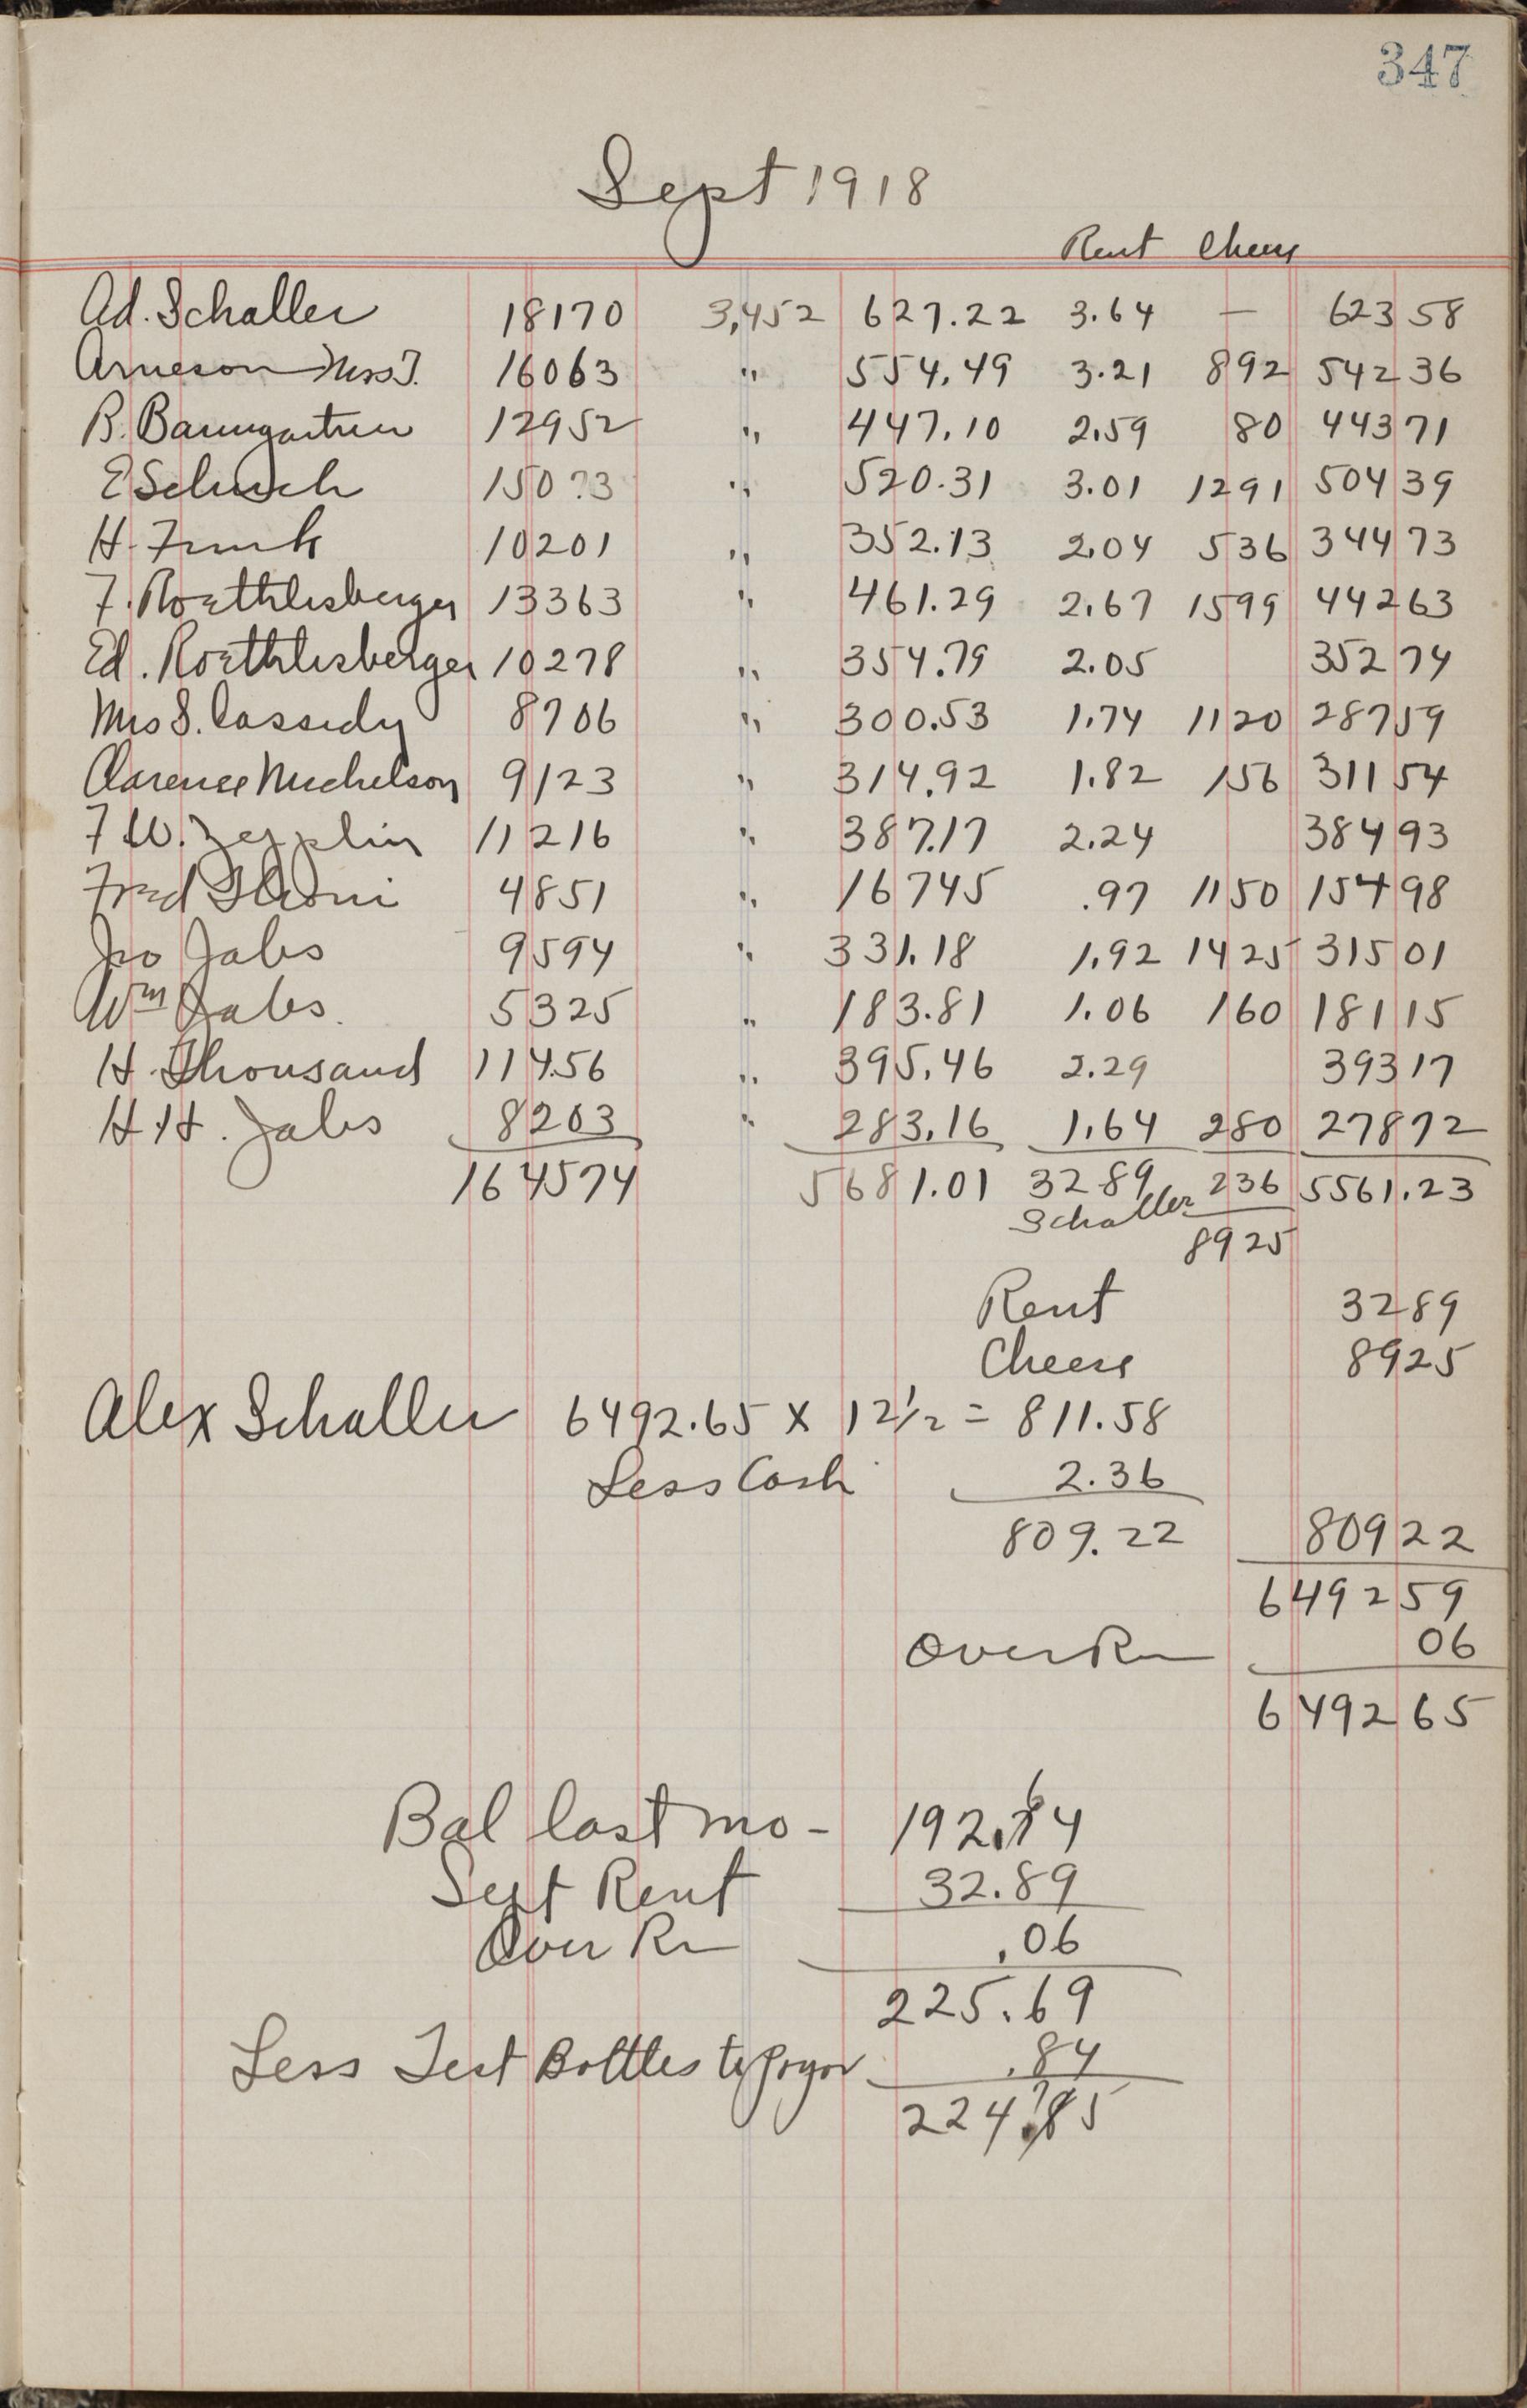 347
Sept 1918
Rent Cheese
Ad. Schaller 18170 3,452 627.22 3.64 — 623 58
Arneson Mrs T. 16063 " 554.49 3.21 892 542 36
R. Baumgartner 12952 " 447.10 2.59 80 443 71
E Schuch 150 3 " 520.31 3.01 1291 504 39
H. Funk 10201 " 352.13 2.04 536 344 73
F. Roethlisberger 13363 " 461.29 2.67 1599 442 63
Ed. Roethlisberger 10278 " 354.79 2.05 352 74
Mrs S. Cassidy 8706 " 300.53 1.74 1120 287 59
Clarence Michelson 9123 " 314.92 1.82 156 311 54
F W. Zepplin 11216 " 387.17 2.24 384 93
Fred Thoni 4851 " 16745 .97 1150 154 98
Jno Jabs 9594 " 331.18 1.92 1425 315 01
Wm Jabs. 5325 " 183.81 1.06 160 181 15
H. Thousand 11456 " 395.46 2.29 393 17
H.H. Jabs 8203 " 283.16 1.64 280 278 72
164574 5681.01 3289 236 5561.23
Schaller
8925
Rent 3289
Cheese 8925
Alex Schaller 6492.65 x 12½ = 811.58
Less Cash 2.36
809.22 809 22
6492 59
Over Rn 06
6492 65
6
Bal last mo - 192.74
Sept Rent 32.89
Over Rn .06
225.69
Less Test Bottles .84
7
224.85